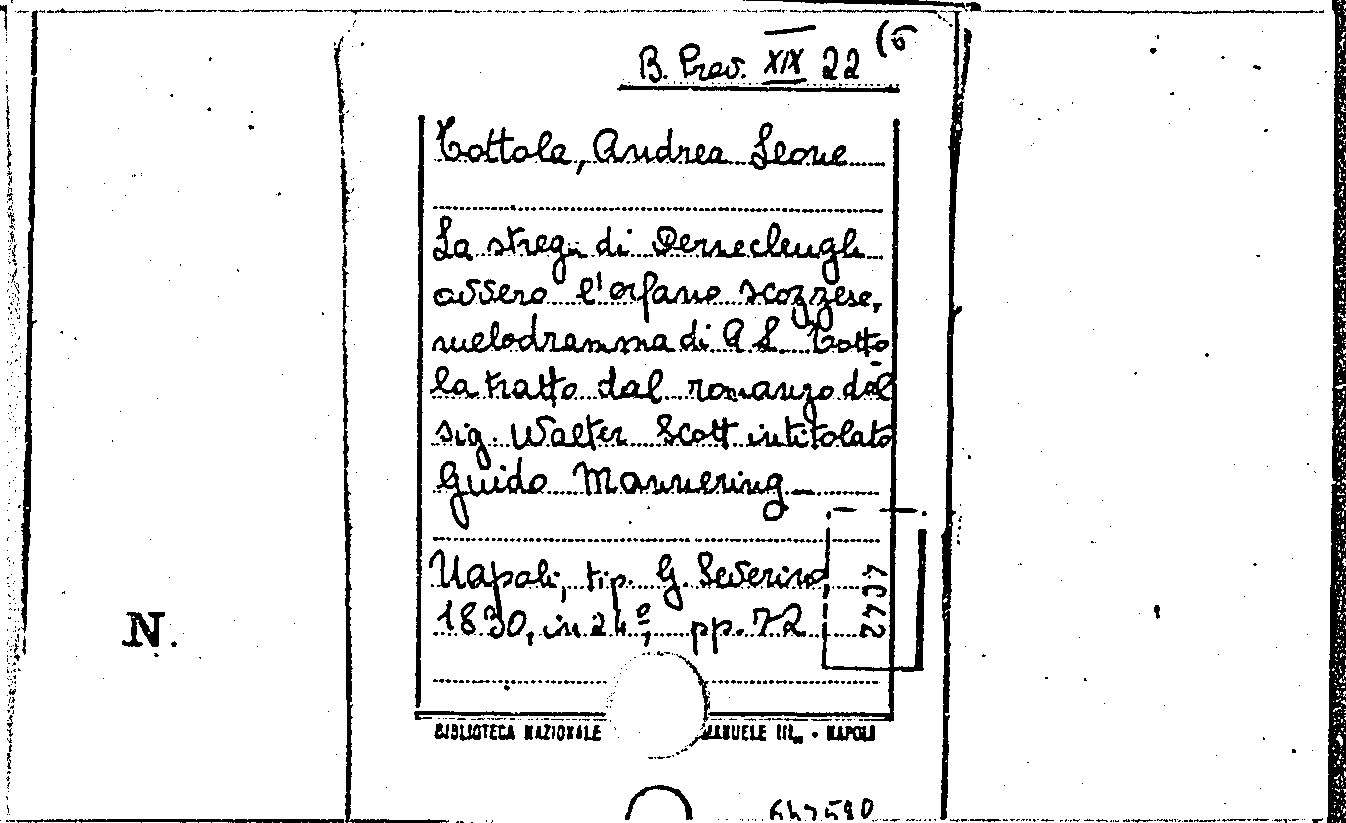 B. Prov. XIX 22 (5
Tottola, Andrea Leone
La strega di Dernecleugh
ossero l'orfano scozzese,
melodramma di A L Totto
la tratto dal romanzo del
sig. Walter Scott intitolato
Guido Mannering
Napoli, tip. G. Severino
1830, in 24º, pp. 72
N.
BIBLIOTECA NAZIONALE MANUELE III,, - NAPOLI